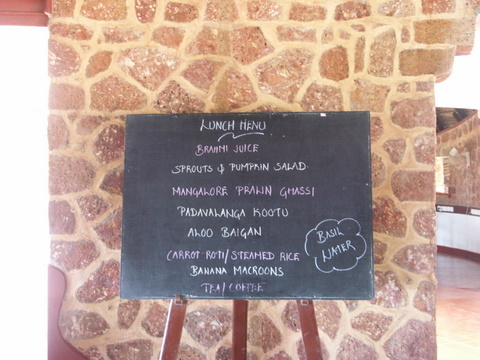 LUNCH MENU
BRAHMI JUICE
SPROUTS & PUMPKIN SALAD.
MANGALORE PRAWN GHASSI
PADAVALANGA KOOTU
ALOO BAIGAN
BASIL
WATER
CARROT ROTI/STEAMED RICE
BANANA MACROONS
TEA/COFFEE